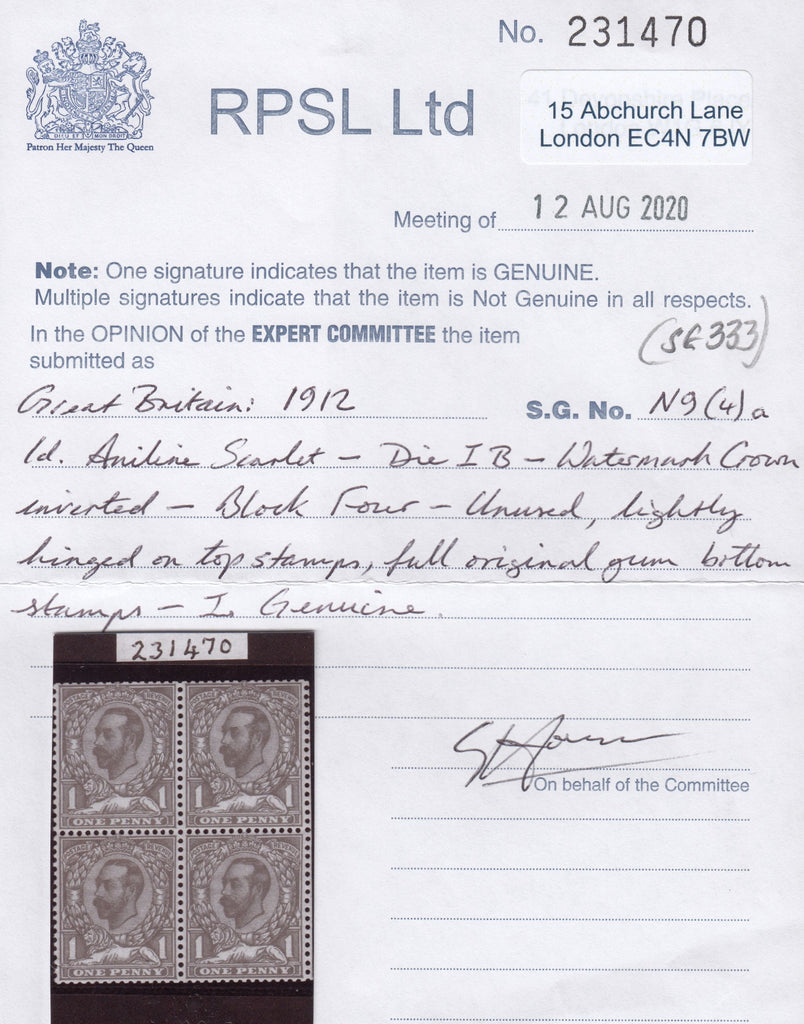 No. 231470
RPSL Ltd
15 Abchurch Lane
London EC4N 7BW
DIEU ET MON DROIT
Patron Her Majesty The Queen
Meeting of 12 AUG 2020
Note: One signature indicates that the item is GENUINE.
Multiple signatures indicate that the item is Not Genuine in all respects.
In the OPINION of the EXPERT COMMITTEE the item
submitted as
(SG 333)
Great Britain: 1912 S.G. No. N9(4)a
1d. Aniline Scarlet – Die IB – Watermark Crown
inverted – Block Four – Unused, lightly
hinged on top stamps, full original gum bottom
stamps – Is Genuine.
231470
POSTAGE REVENUE POSTAGE REVENUE
1 1 1 1
ONE PENNY ONE PENNY
POSTAGE REVENUE POSTAGE REVENUE
1 1 1 1
ONE PENNY ONE PENNY
On behalf of the Committee